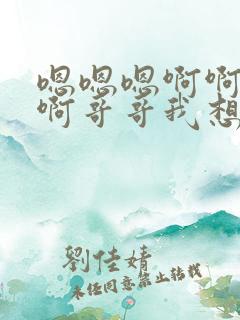 嗯嗯嗯啊啊
啊哥哥我想
劉佳婧
未经同意禁止转载